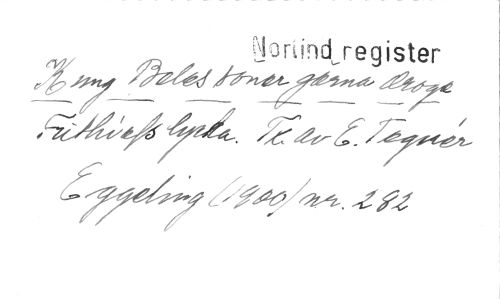 Norlind, register
Kung Beles söner gärna droge
Frithiofs lycka. Tx. av E. Tegnér
Eggeling (1900) nr. 282